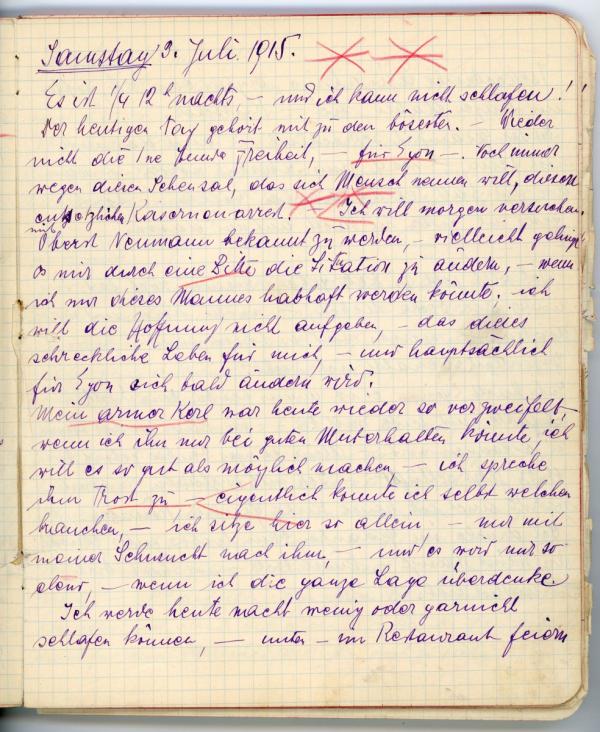 Samstag 3. Juli 1915.
Es ist ¼ 12 h nachts, — und ich kann nicht schlafen!
Der heutigen Tag gehört mit zu den bösesten. — Wieder
nicht die Freiheit, — für Egon —. Noch immer
wegen diesen Scheusal, das sich Mensch nennen will, diesen
entsetzlichen Kasernenarrest. — Ich will morgen versuchen
mit
Oberst Neumann bekannt zu werden, — vielleicht gelingt
es mir durch eine Bitte die Situation zu ändern, — wenn
ich nur dieses Mannes habhaft werden könnte. ich
will die Hoffnung nicht aufgeben, — das dieses
schreckliche Leben für mich, — und hauptsächlich
für Egon sich bald ändern wird.
Mein armer Kerl war heute wieder so verzweifelt,
wenn ich ihn nur bei guten Mut erhalten könnte, ich
will es so gut als möglich machen, — ich spreche
ihm Trost zu — eigentlich könnte ich selbst welchen
brauchen, — ich sitze hier so allein — nur mit
meiner Sehnsucht nach ihm, — und es wird mir so
elend, — wenn ich die ganze Lage überdenke
Ich werde heute nacht wenig oder garnicht
schlafen können, — unten — im Restaurant feiern